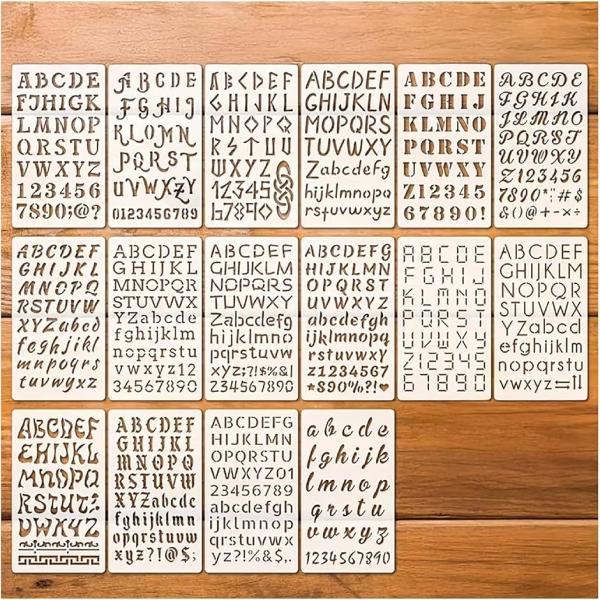 ABCDE
FJHIGK
LMNOP
QRSTU
VWXYZ
123456
7890:@?
ABCDE
FGHIJ
KLOMN
PQRST
UVWXZY
0123456789
ABCDEF
GHIJKL
MNOPQ
RSTUU
WXYZ
12345
67890
ABCDEF
GHIJKLN
MOPQRS
TUVWXY
Zabcdefg
hijklmnopq
rstuvwxyz
ABCDE
FGHIJ
KLMNO
PQRST
UVWXY
Z12345
67890!
ABCDE
FGHIJK
LMNO
PQRST
UVWXY
Z123456
7890*:#$
&()@+-×÷
ABCDEF
GHIJKL
MNOPQ
RSTUVW
XYZabcd
efghijkl
mnopqrs
tuvwxyz
ABCDEF
GHIJKL
MNOPQR
STUVWX
YZabcde
fghijklm
nopqrstu
vwxyz12
34567890
ABCDEF
GHIJKLM
NOPQRS
TUVWXY
Zabcdefg
hijklmno
pqrstuvw
xyz;?!$%&
1234567890
ABCDEFG
HIJKLMN
OPQRST
UVWXYZ
abcdefgh
ijklmnopq
rstuvwxy
z1234567
*890%?!♥
ABCDE
FGHIJ
KLMNO
PQRST
UVWXYZ
12345
67890
ABCDEF
GHIJKLM
NOPQR
STUVWX
YZabcd
efghijklm
nopqrstu
vwxyz
ABCDEF
GHIJKL
MNOPQ
RSTUT
UWXYZ
ABCDEF
GHIJKL
MNOPQR
STUVW
XYZabcde
fghijklmn
opqrstuvw
xyz?!@$;
ABCDEFG
HIJKLMN
OPQRSTU
VWXYZ01
23456789
abcdefgh
ijklmnopq
rstuvwx
yz?!%&$,.
abcde
fghijk
lmnop
qrstu
vwxyz
1234567890